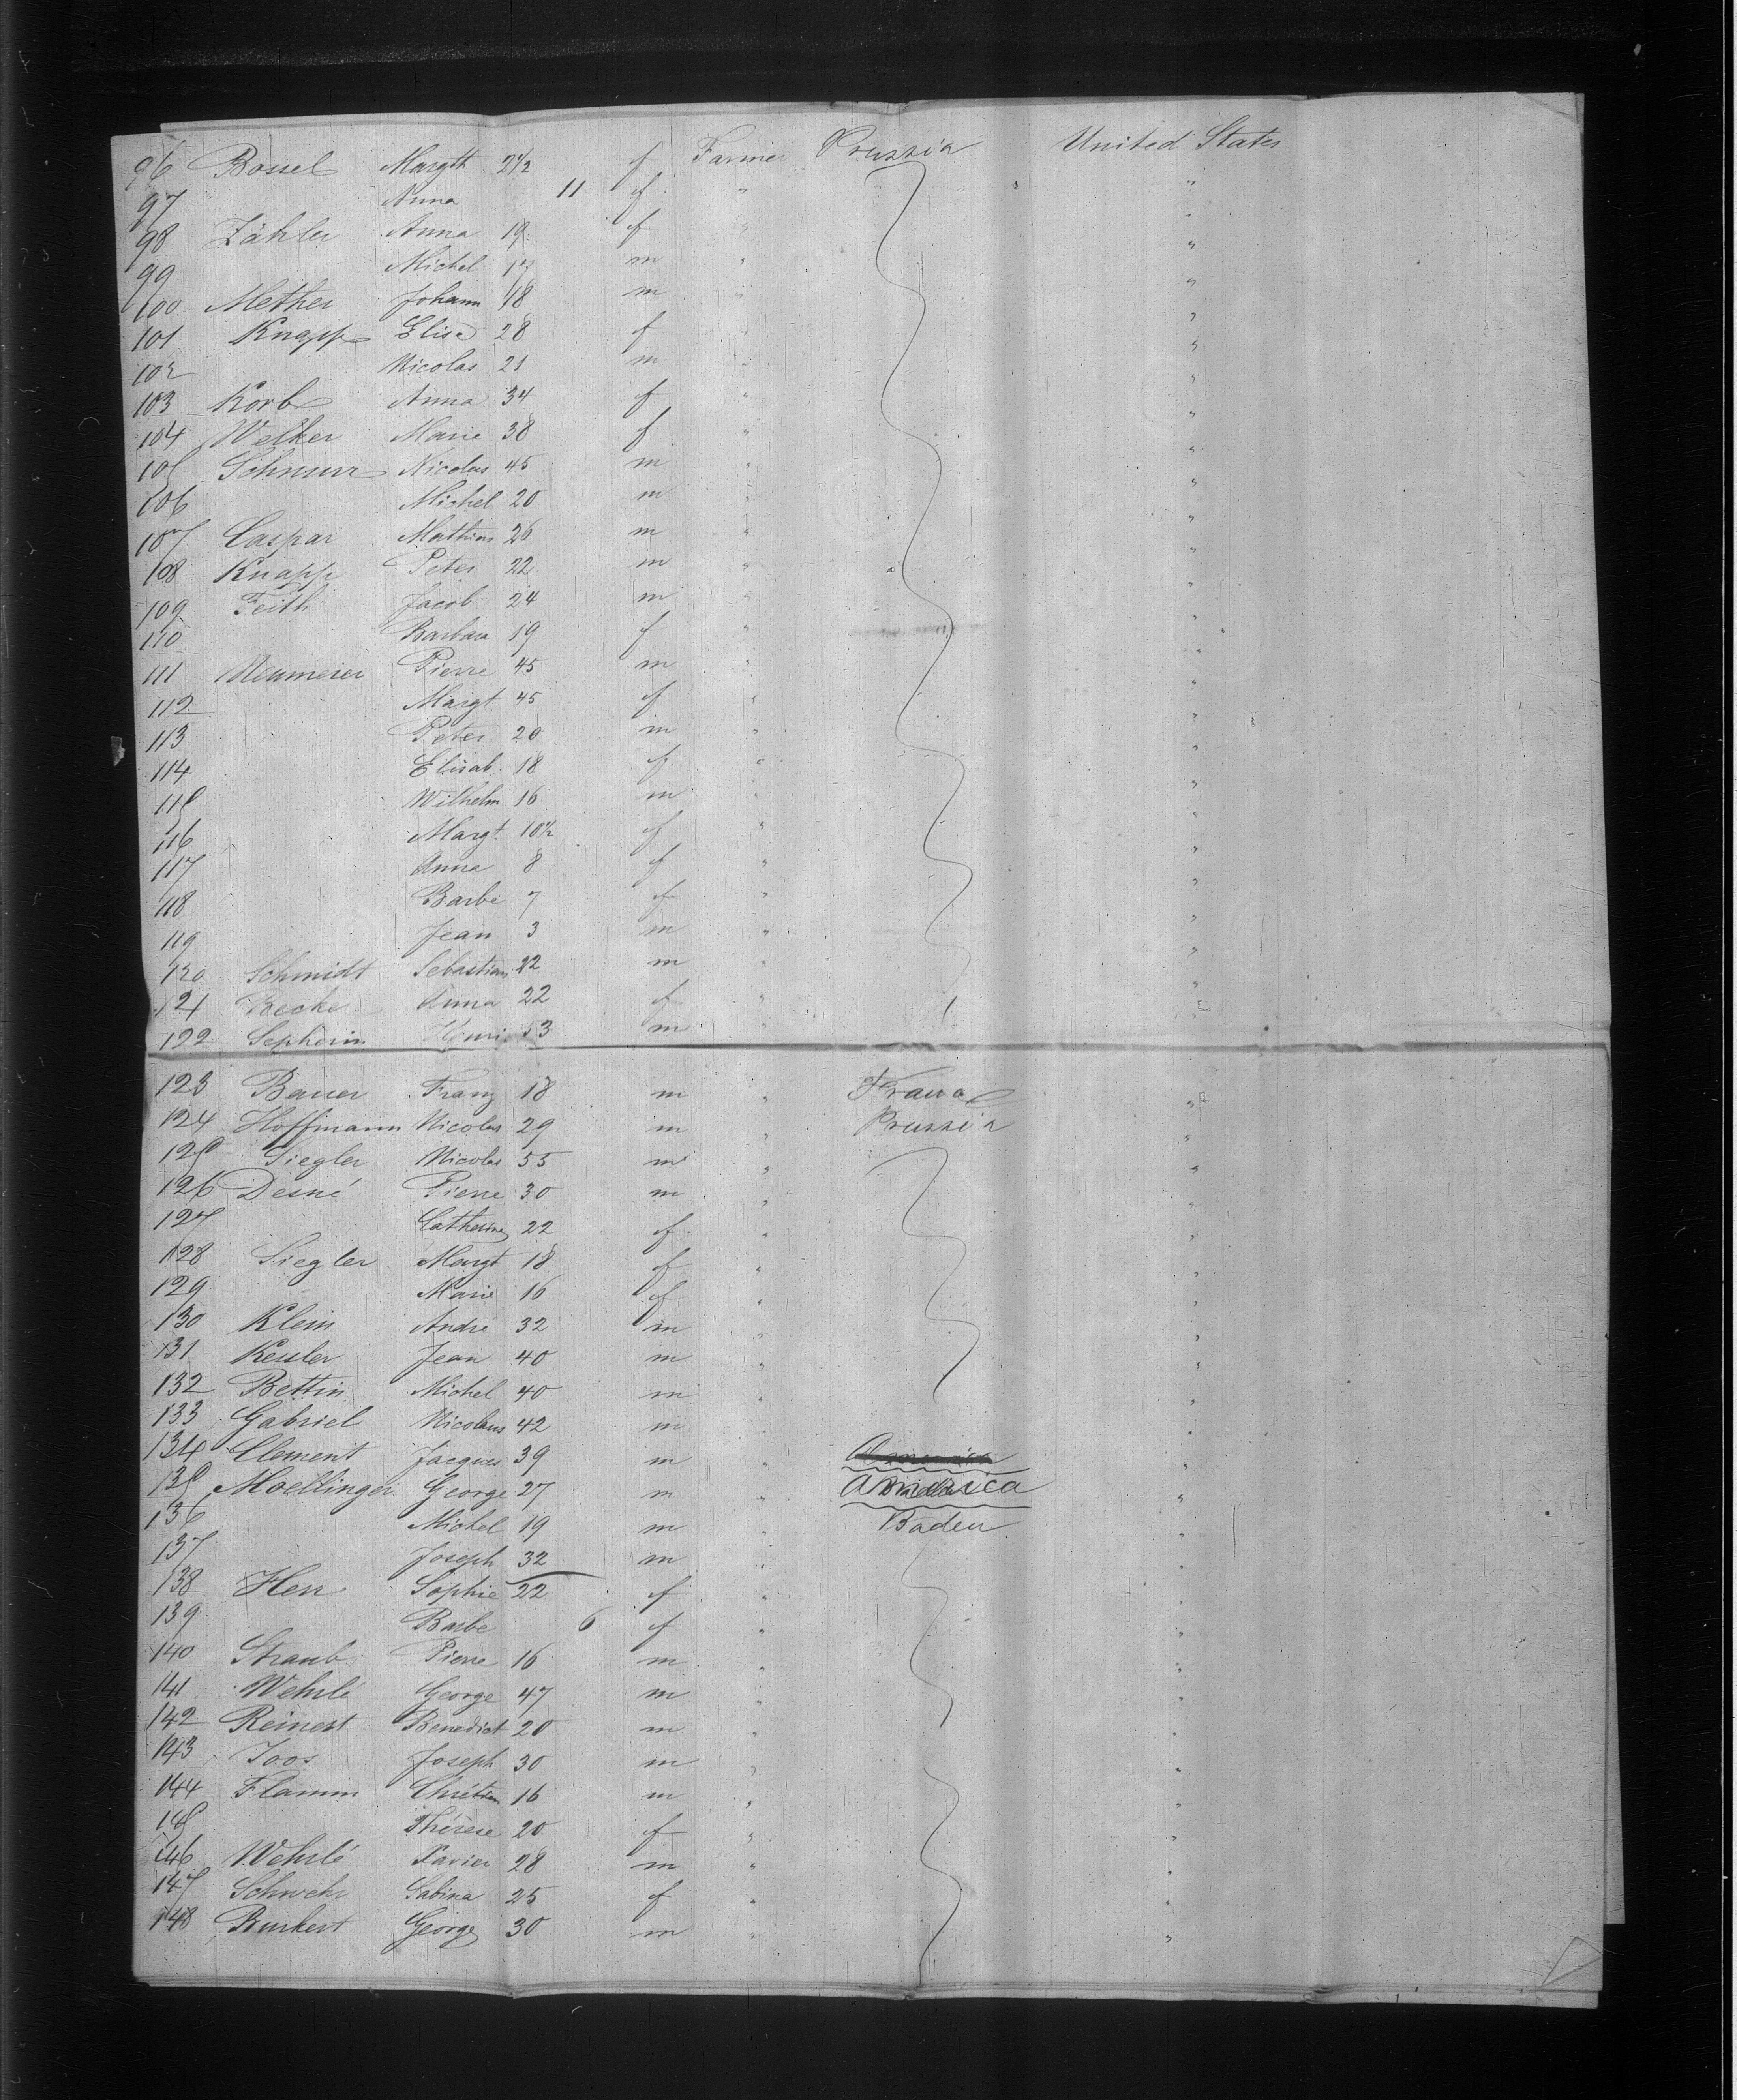 96 Bossel Margth 2 1/2 f Farmer Prussia United States
97 Anna 11 f " "
98 Zähler Anna 19 f " "
99 Michel 17 m " "
100 Mether Johann 18 m " "
101 Knapp Elise 28 f " "
102 Nicolas 21 m " "
103 Korb Anna 34 f " "
104 Welker Marie 38 f " "
105 Schnurr Nicolas 45 m " "
106 Michel 20 m " "
107 Caspar Mathias 26 m " "
108 Knapp Peter 22 m " "
109 Feith Jacob 24 m " "
110 Barbara 19 f " "
111 Neumeier Pierre 45 m " "
112 Margt 45 f " "
113 Peter 20 m " "
114 Elisab. 18 f " "
115 Wilhelm 16 m " "
116 Margt. 10 1/2 f " "
117 Anna 8 f " "
118 Barbe 7 f " "
119 Jean 3 m " "
120 Schmidt Sebastian 22 m " "
121 Becke Anna 22 f " "
122 Sepherin Henri 53 m " "
123 Bauer Franz 18 m " France "
124 Hoffmann Nicolas 29 m " Prussia "
125 Siegler Nicolas 55 m " "
126 Desné Pierre 30 m " "
127 Catherine 22 f " "
128 Siegler Margt 18 f " "
129 Marie 16 f " "
130 Klein André 32 m " "
131 Kessler Jean 40 m " "
132 Bettin Michel 40 m " "
133 Gabriel Nicolaus 42 m " "
134 Clement Jacques 39 m " "
135 Moellinger George 27 m " America "
136 Michel 19 m " Baden "
137 Joseph 32 m " "
138 Herr Sophie 22 f " "
139 Barbe 6 f " "
140 Straub Pierre 16 m " "
141 Wehrlé George 47 m " "
142 Reinert Benedict 20 m " "
143 Joos Joseph 30 m " "
144 Flamm Chrétien 16 m " "
145 Thérèse 20 f " "
146 Wehrlé Xavier 28 m " "
147 Schwehr Sabina 25 f " "
148 Burkert George 30 m " "